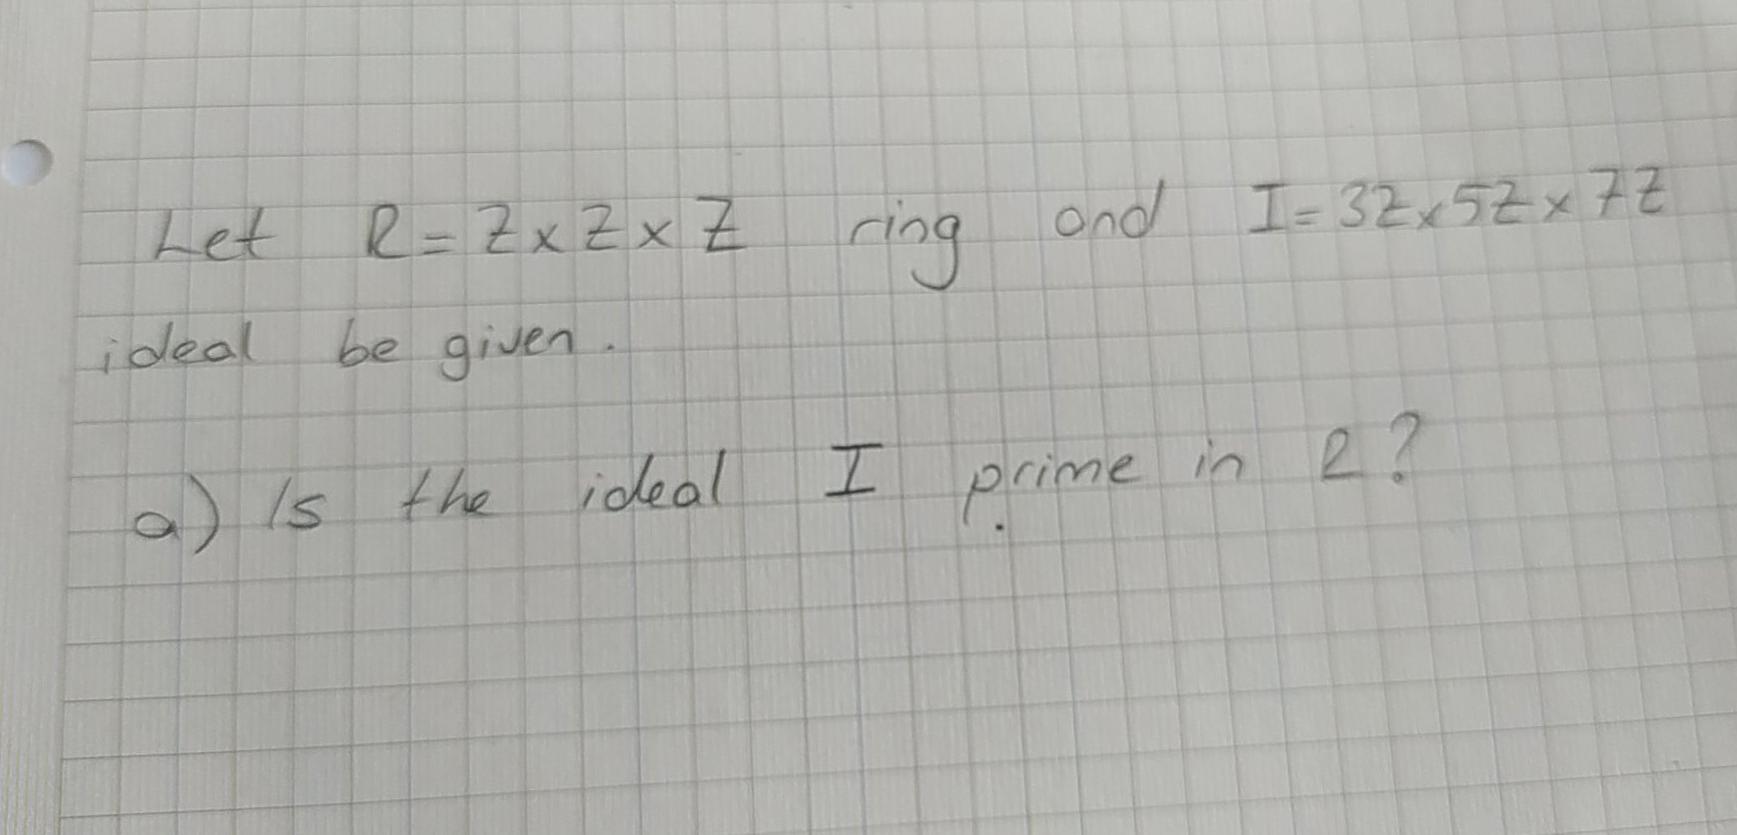 Let R = Z x Z x Z ring and I = 3Z x 5Z x 7Z
ideal be given.
a) Is the ideal I prime in R?